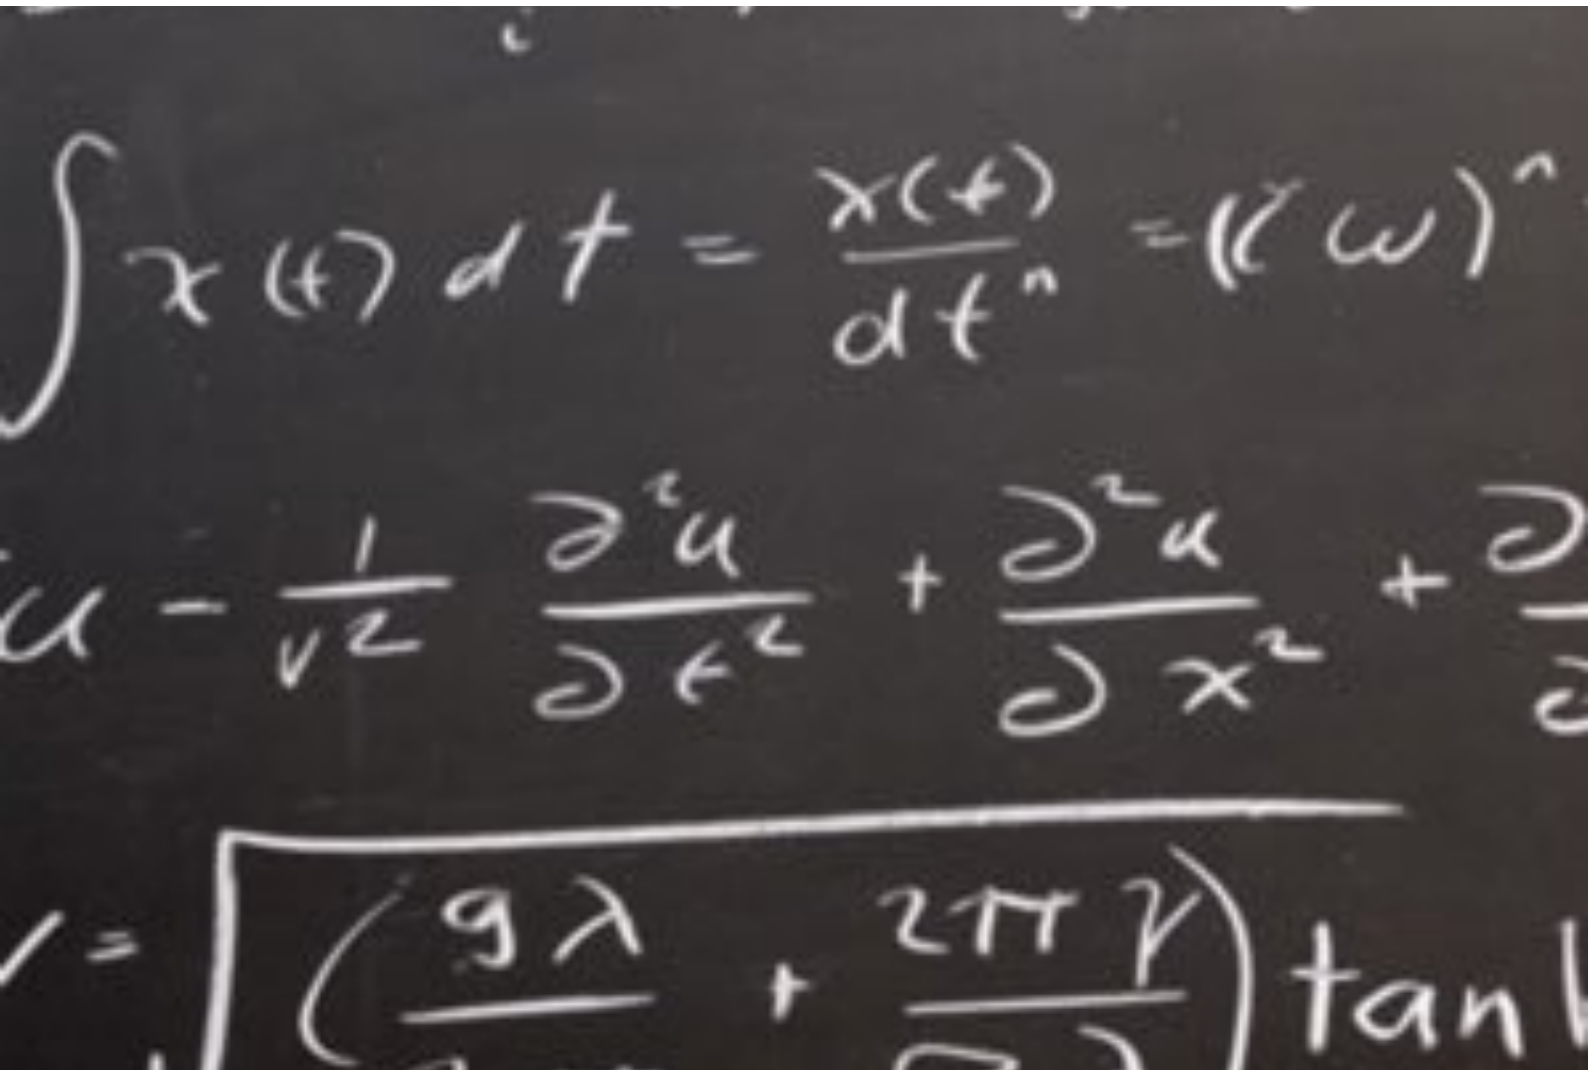 ∫ x(t) dt = x(t) / dt^n = (i ω)^n
u - 1/v² ∂²u/∂t² + ∂²u/∂x² + ∂
v = √( (gλ + 2πγ) tanh